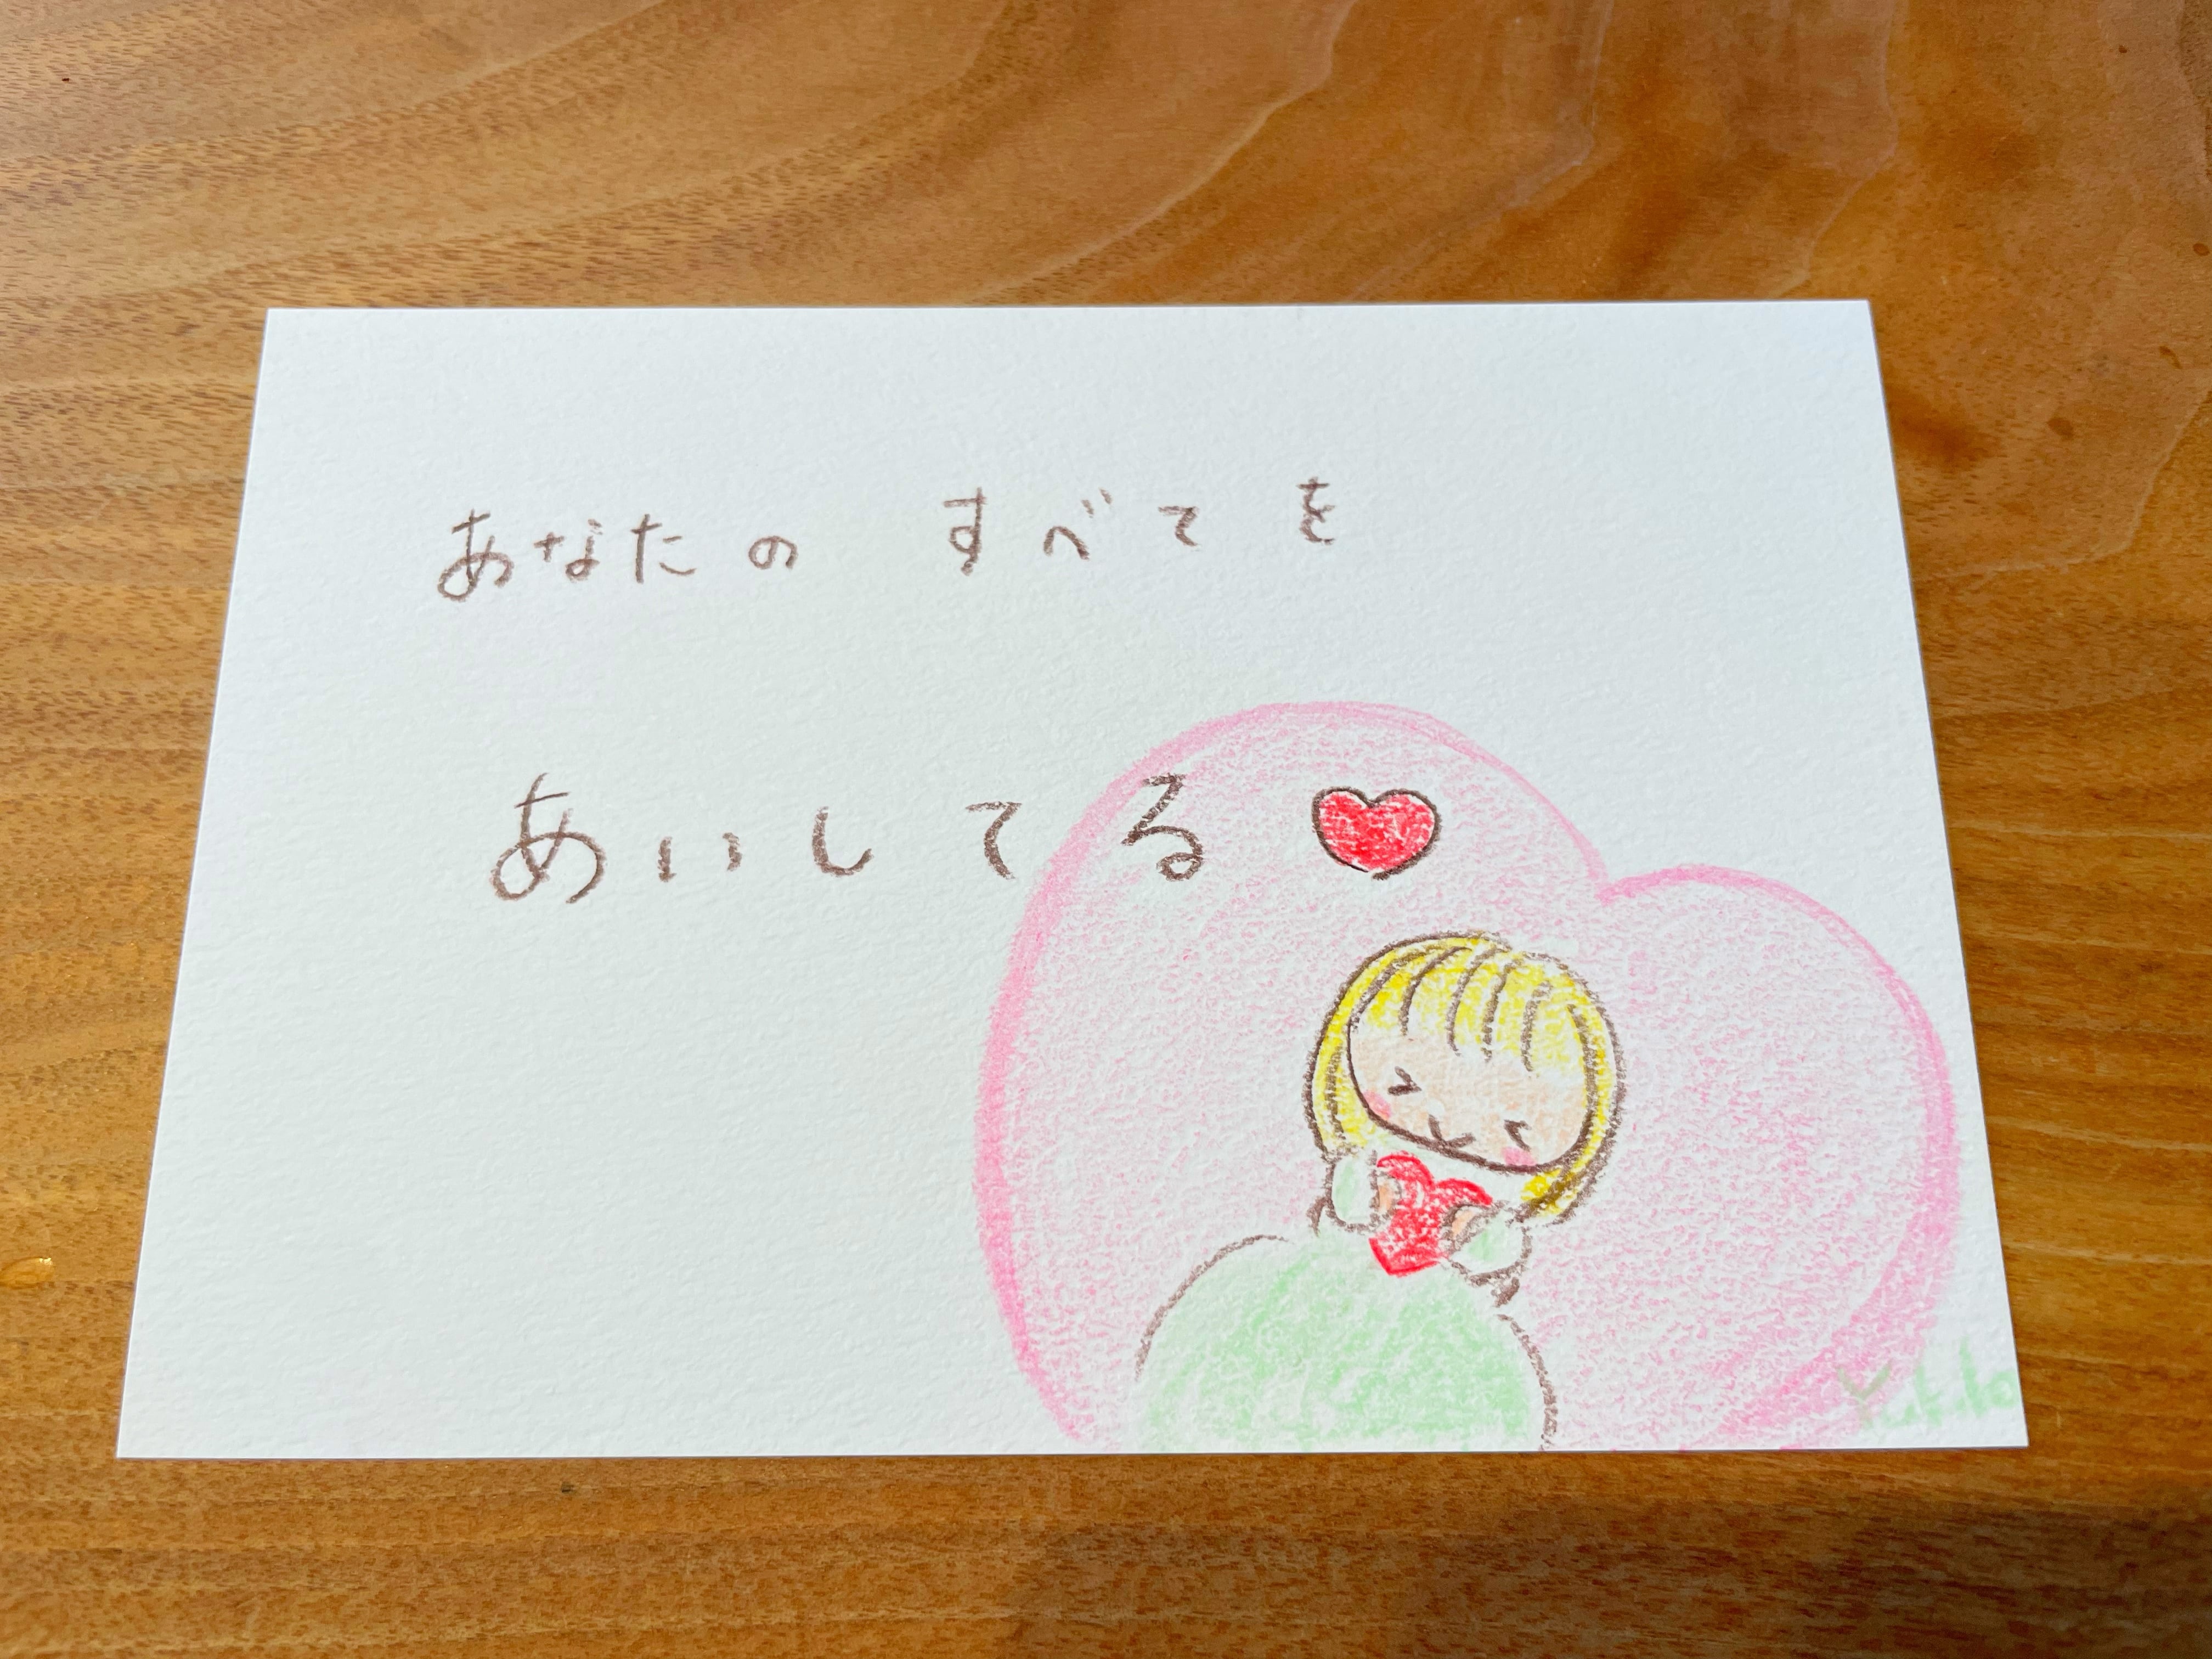 あなたの すべてを
あいしてる